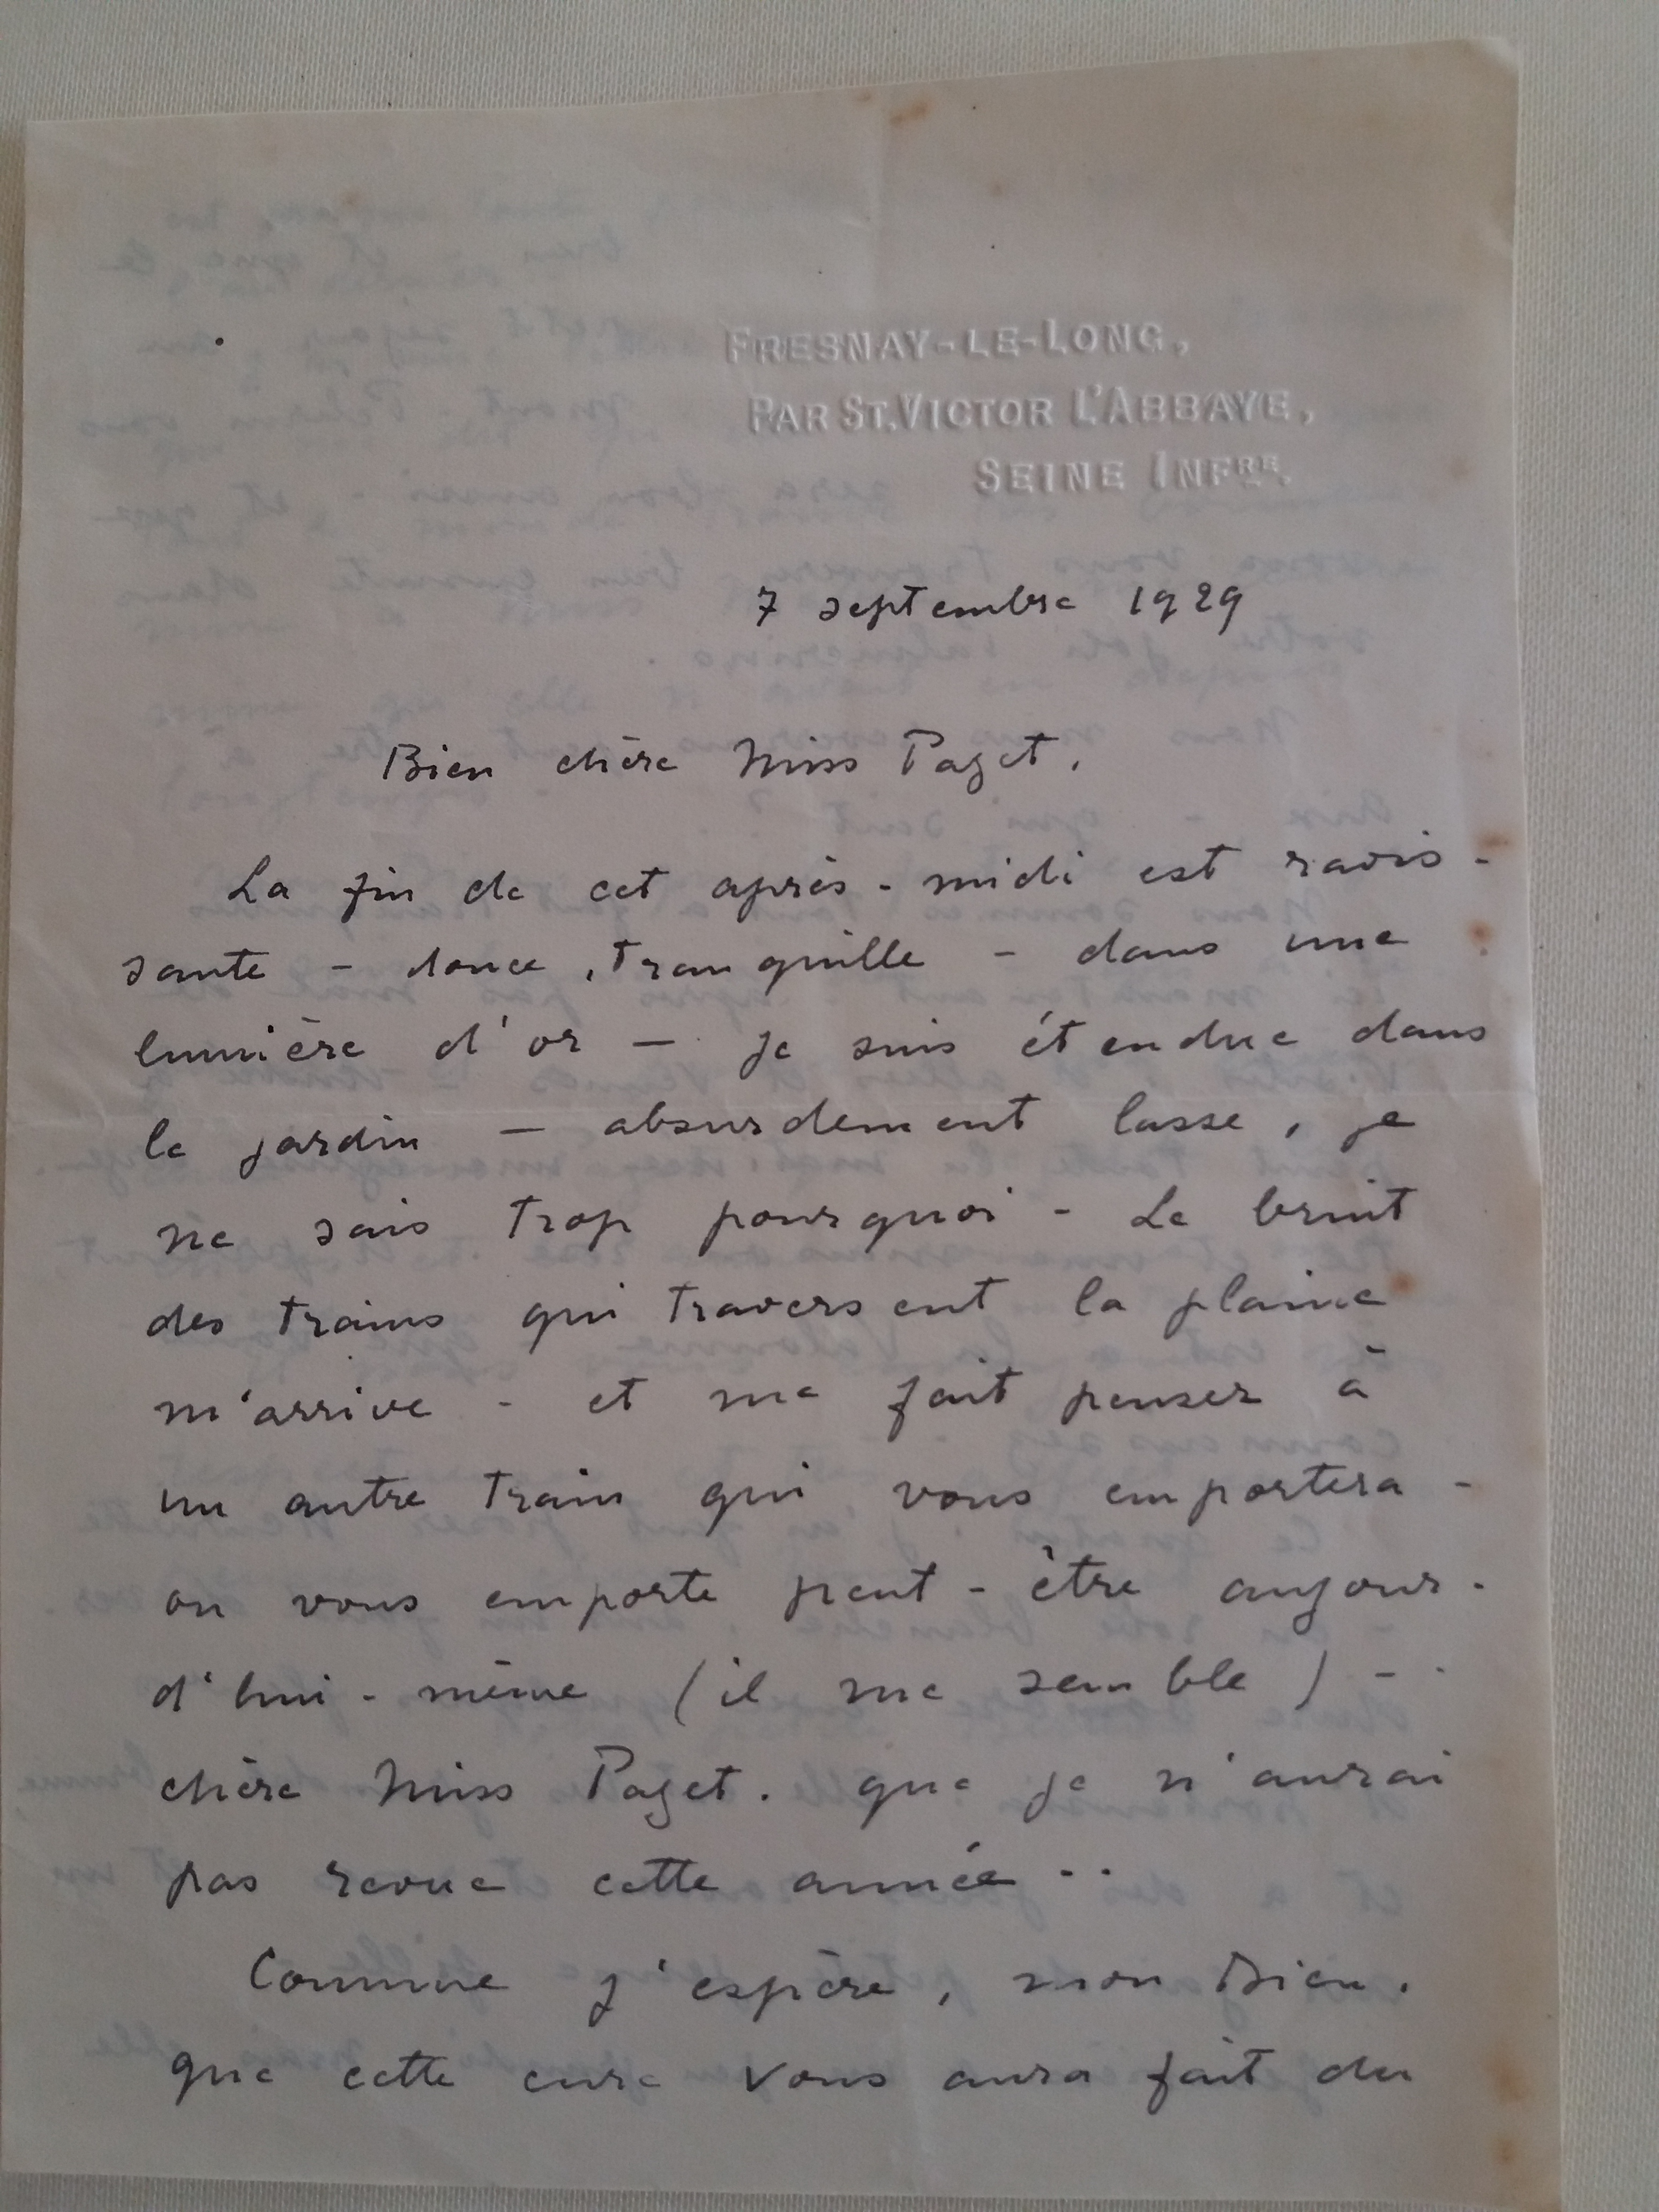 FRESNAY-LE-LONG,
PAR ST. VICTOR L'ABBAYE,
SEINE INFRE.
7 septembre 1929
Bien chère Miss Paget,
La fin de cet après-midi est ravis-
sante - douce, tranquille - dans une
lumière d'or — je suis étendue dans
le jardin — absurdement lasse, je
ne sais trop pourquoi - Le bruit
des trains qui traversent la plaine
m'arrive - et me fait penser à
un autre train qui vous emportera -
ou vous emporte peut-être aujour-
d'hui-même (il me semble) - .
chère Miss Paget. que je n'aurai
pas revue cette année ..
Comme j'espère, mon Dieu,
que cette cure vous aura fait du